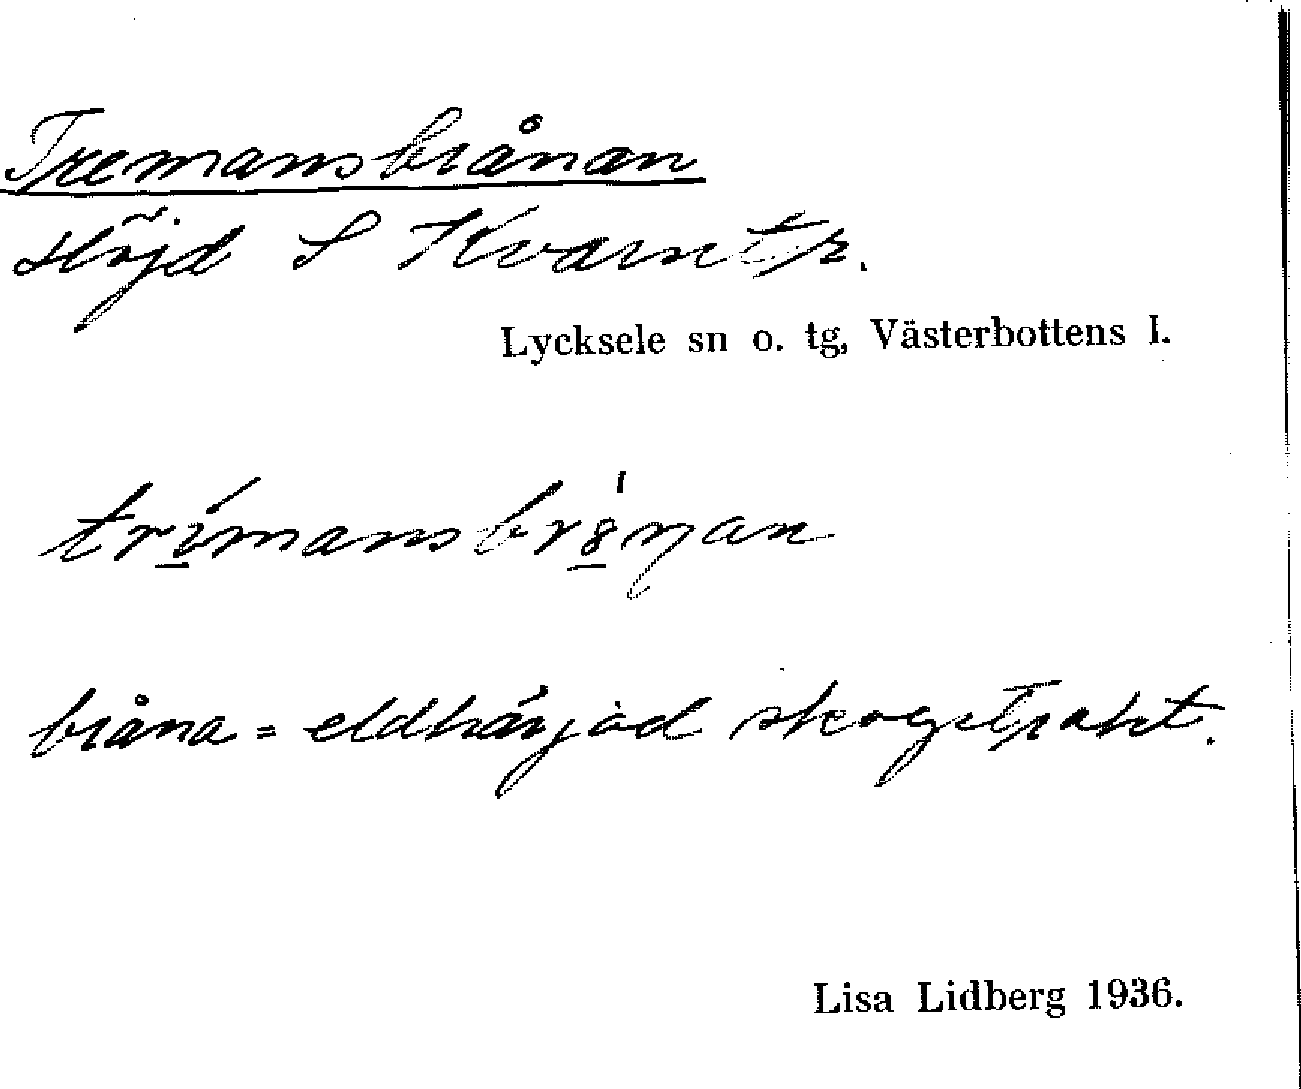 Tremansbrånan
Höjd S Kvarntr.
Lycksele sn o. tg, Västerbottens l.
trimansbrånan
bråna = eldhärjad skogstrakt.
Lisa Lidberg 1936.